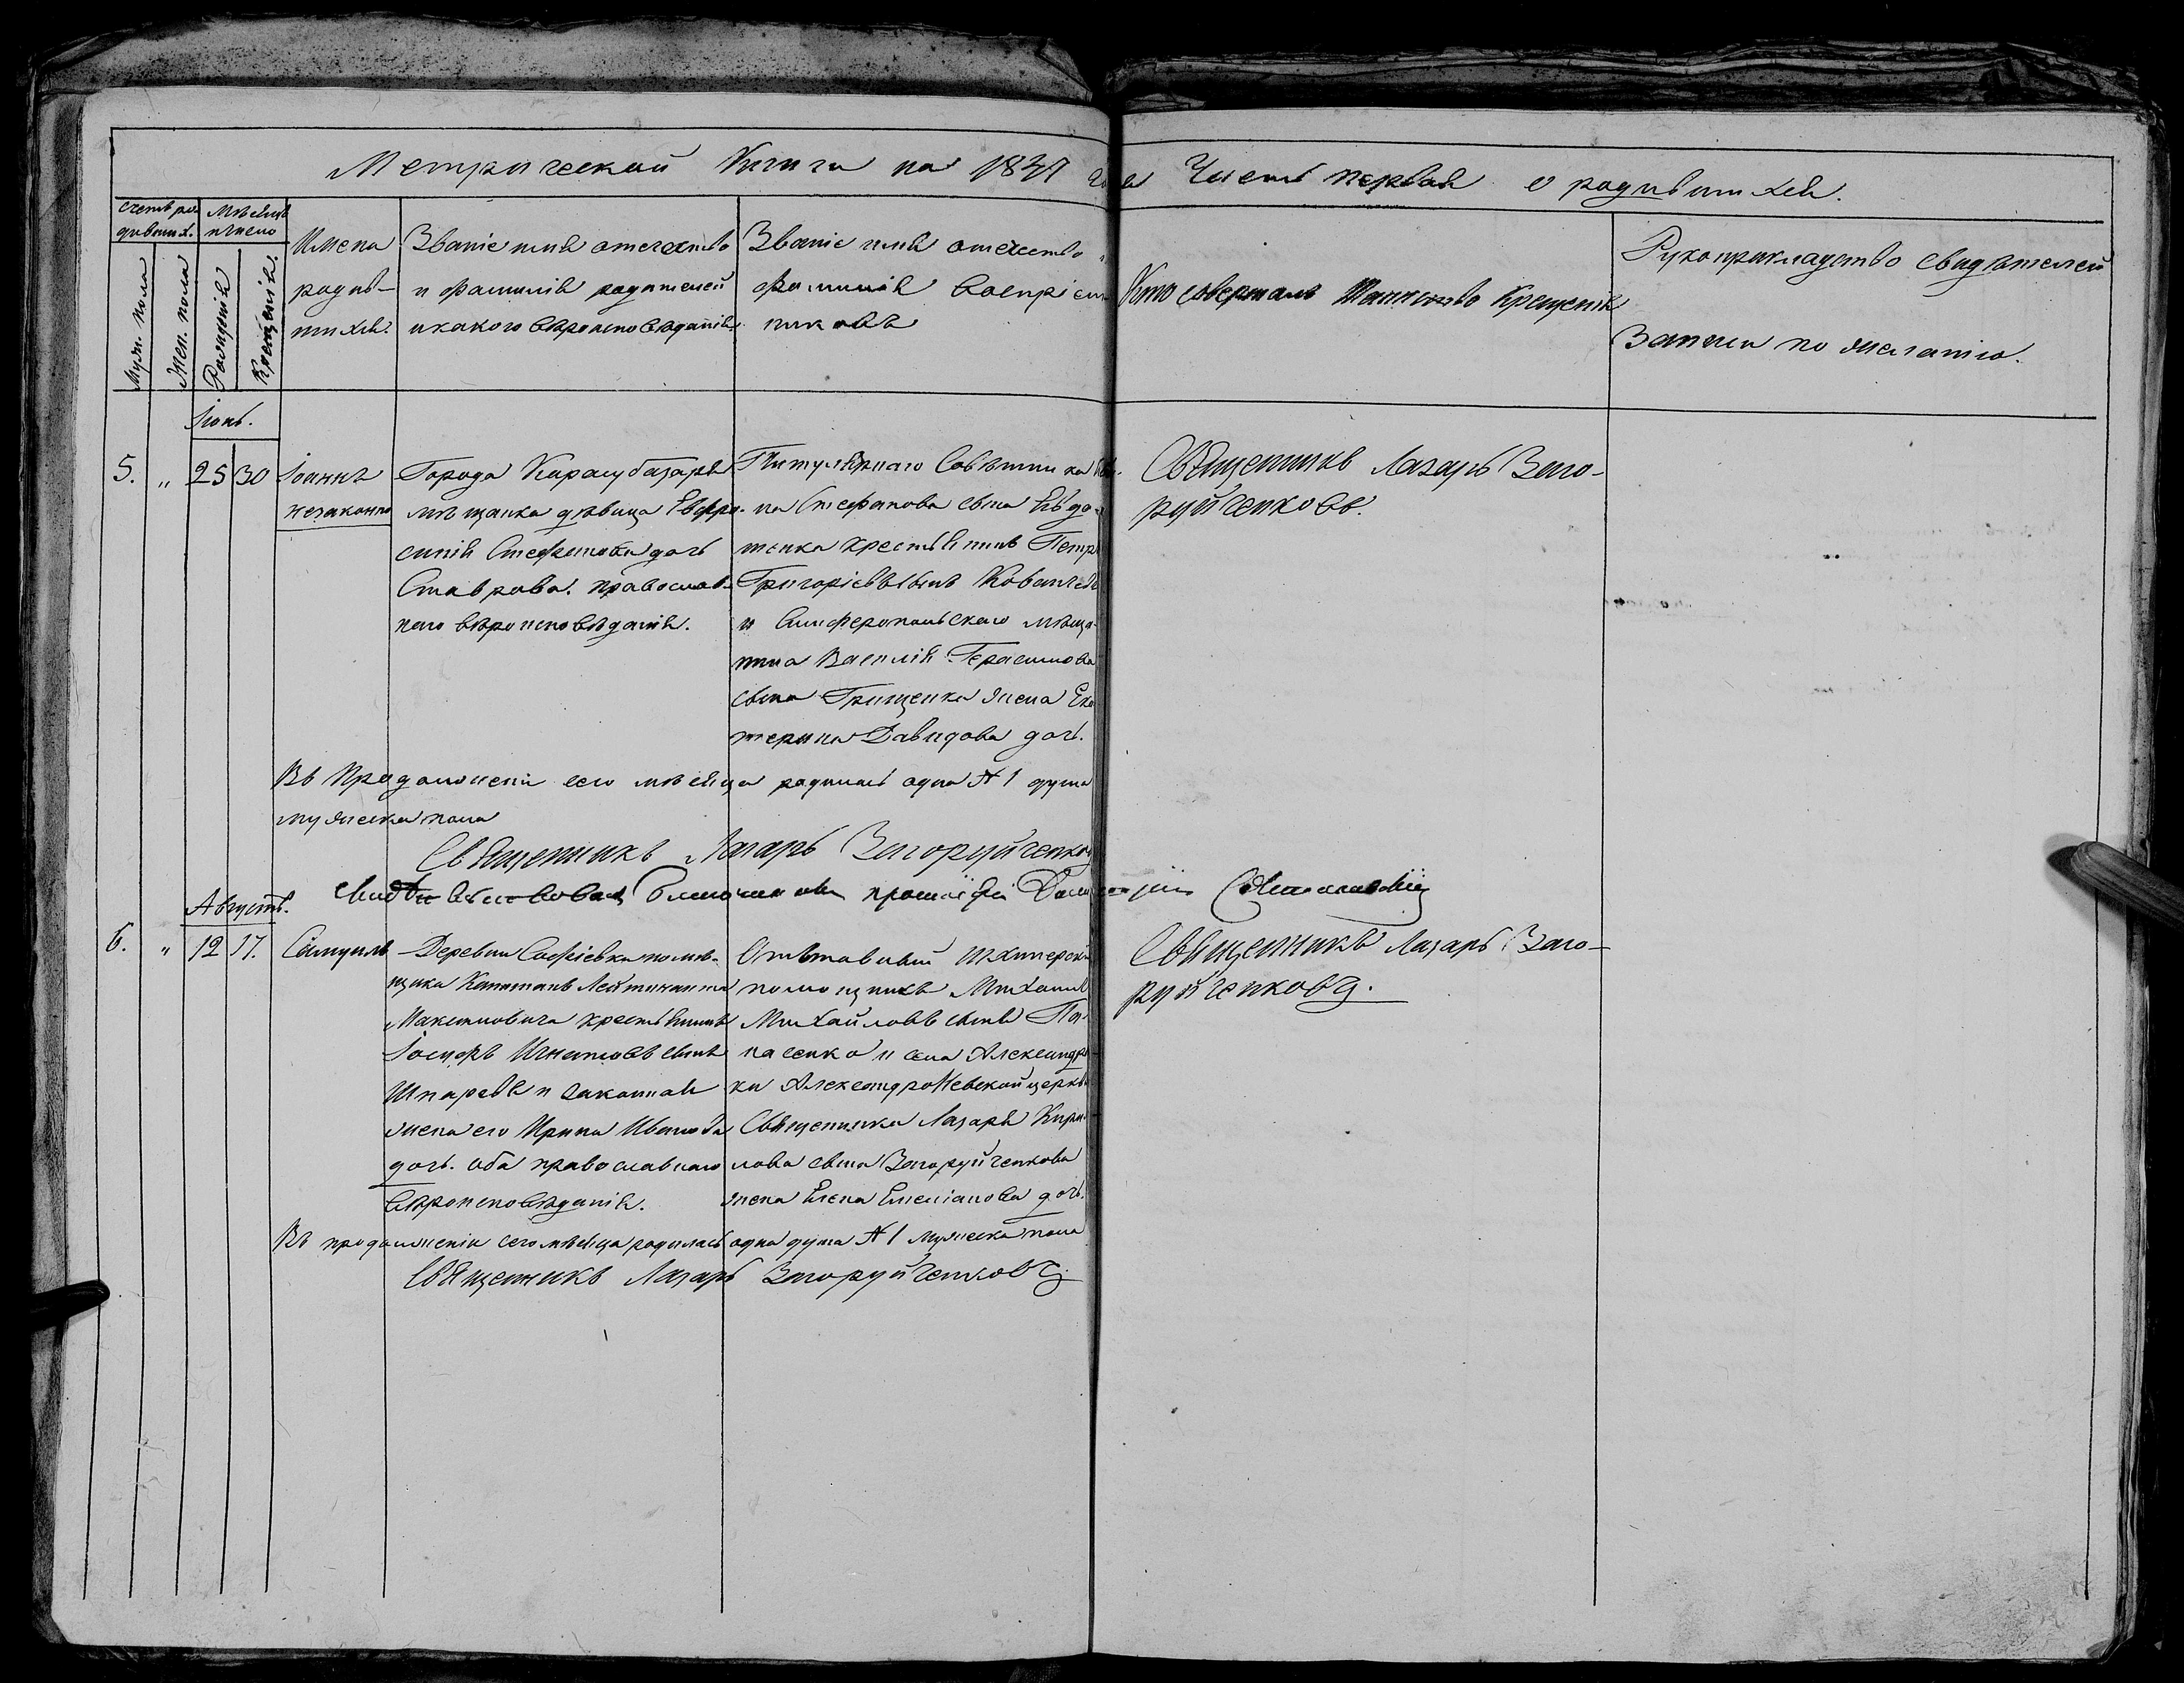 Метрической Книги на 1837 года Часть первая о родившихся.
счетъ ро-
дивших.
Муж. пола
Жен. пола
Мѣсяцъ
и число
Рожденія
Крещенія.
Имена
родив-
шихся.
Званіе имя отечество
и фамилія родителей
и какого вѣроисповѣданія.
Званіе имя отечество и
фамилія воспріем-
никовъ
Кто совершалъ Таинство Крещенія
Рукоприкладство свидѣтелей
Записи по желанію.
Іюнь.
5. „ 25 30
Іоаннъ
незаконно
Города Карасубазара
мѣщанка дѣвица Евфро-
синія Стефанова дочь
Ставрова. православ-
наго вѣроисповѣданія.
Титулярнаго Совѣтника
на Стефанова сына
крестьянинъ Петръ
Григорієвъ сынъ
и Симферопольскаго мѣща-
нина Василія Герасимова
сына Грищенка жена Ека
терина Давидова дочь.
Священникъ Лазарь Заго-
руйченковъ.
Въ Продолженіи сего мѣсяца родилась одна № 1 душа
мужеска пола
Священникъ Лазарь Загоруйченковъ
Августъ.
6. „ 12 17.
Самуилъ
Деревни Софіевки помѣ-
щика Капитанъ Лейтинанта
крестьянинъ
Игнатовъ сынъ
Шпаревъ и законная
жена его Ирина Иванова
дочь. оба православнаго
вѣроисповѣданія.
Отставный Шхиперскій
помощникъ Михаилъ
Михайловъ сынъ Па-
насенко и села Александров-
ки Александроневской церкви
Священника Лазаря Кири-
лова сына Загоруйченкова
жена Елена Емеліанова дочь.
Священникъ Лазарь Заго-
руйченковъ.
Въ продолженіи сего мѣсяца родилась одна душа № 1 мужеска пола
Священникъ Лазарь Загоруйченковъ